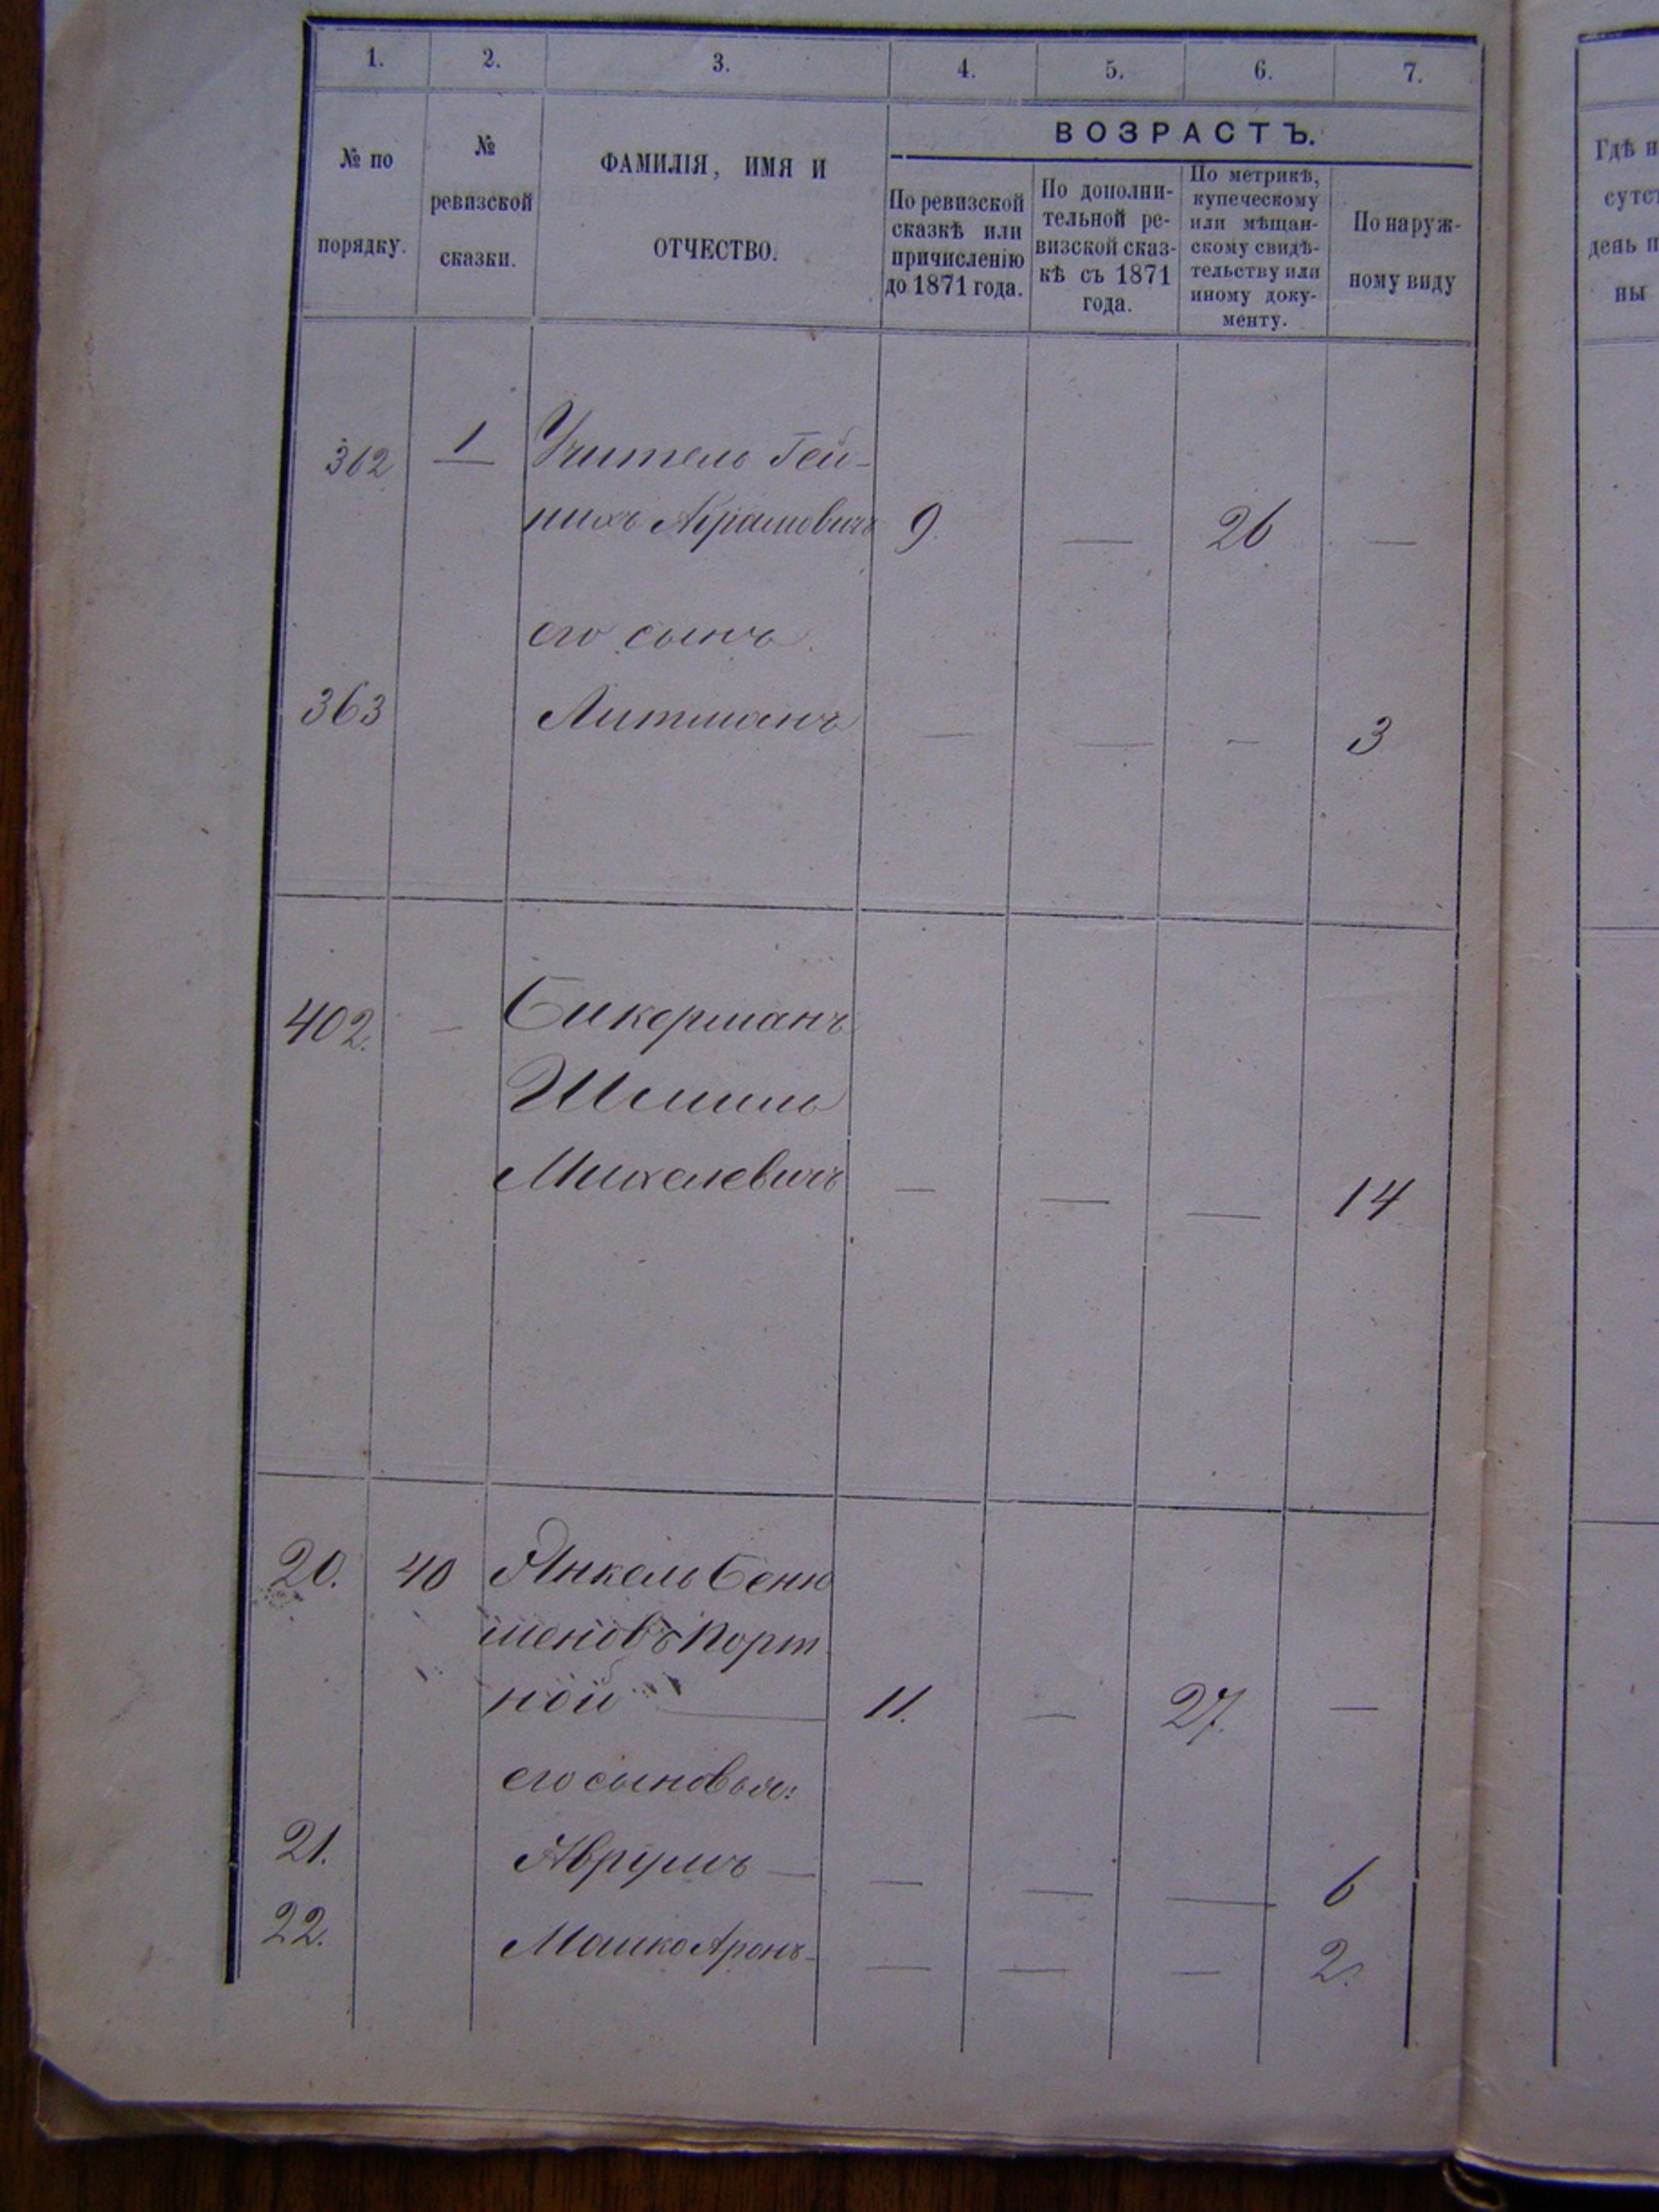 1. 2. 3. 4. 5. 6. 7.
№ по порядку.
№ ревизской сказки.
ФАМИЛІЯ, ИМЯ И ОТЧЕСТВО.
ВОЗРАСТЪ.
По ревизской
сказкѣ или
причисленію
до 1871 года.
По дополни-
тельной ре-
визской сказ-
кѣ съ 1871
года.
По метрикѣ,
купеческому
или мѣщан-
скому свидѣ-
тельству или
иному доку-
менту.
По наруж-
ному виду
Гдѣ н
сутст
день п
ны
362 1 Учитель Гей-
нихъ Абрамовичъ 9. — 26 —
его сынъ
363 Литманъ — — — 3
402. — Бикерманъ
Шмиль
Михелевичъ — — — 14
20. 40 Янкель Беню
меновъ Порт
ной — 11. — 27. —
его сыновья:
21. Аврумъ — — — — 6
22. Мошко Аронъ — — — 2.